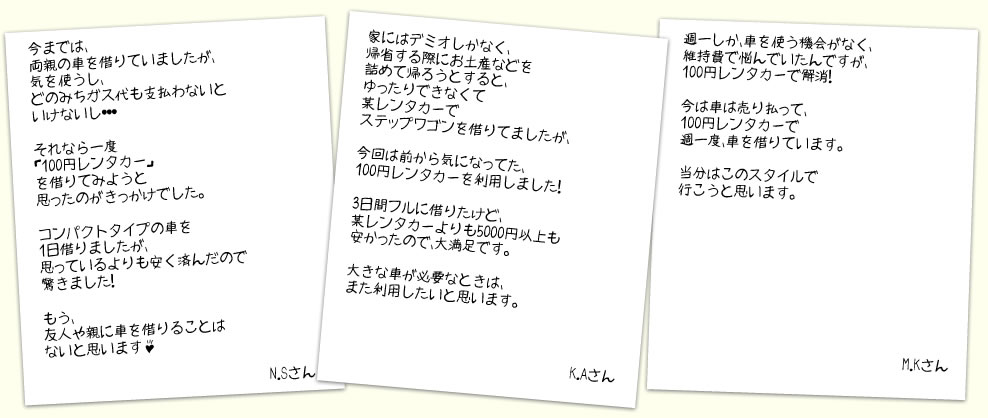 今までは、
両親の車を借りていましたが、
気を使うし、
どのみちガス代も支払わないと
いけないし•••
それなら一度
「100円レンタカー」
を借りてみようと
思ったのがきっかけでした。
コンパクトタイプの車を
1日借りましたが、
思っているよりも安く済んだので
驚きました!
もう、
友人や親に車を借りることは
ないと思います♥
N.Sさん
家にはデミオしかなく、
帰省する際にお土産などを
詰めて帰ろうとすると、
ゆったりできなくて
某レンタカーで
ステップワゴンを借りてましたが、
今回は前から気になってた、
100円レンタカーを利用しました!
3日間フルに借りたけど、
某レンタカーよりも5000円以上も
安かったので、大満足です。
大きな車が必要なときは、
また利用したいと思います。
K.Aさん
週一しか、車を使う機会がなく、
維持費で悩んでいたんですが、
100円レンタカーで解消!
今は車は売り払って、
100円レンタカーで
週一度、車を借りています。
当分はこのスタイルで
行こうと思います。
M.Kさん